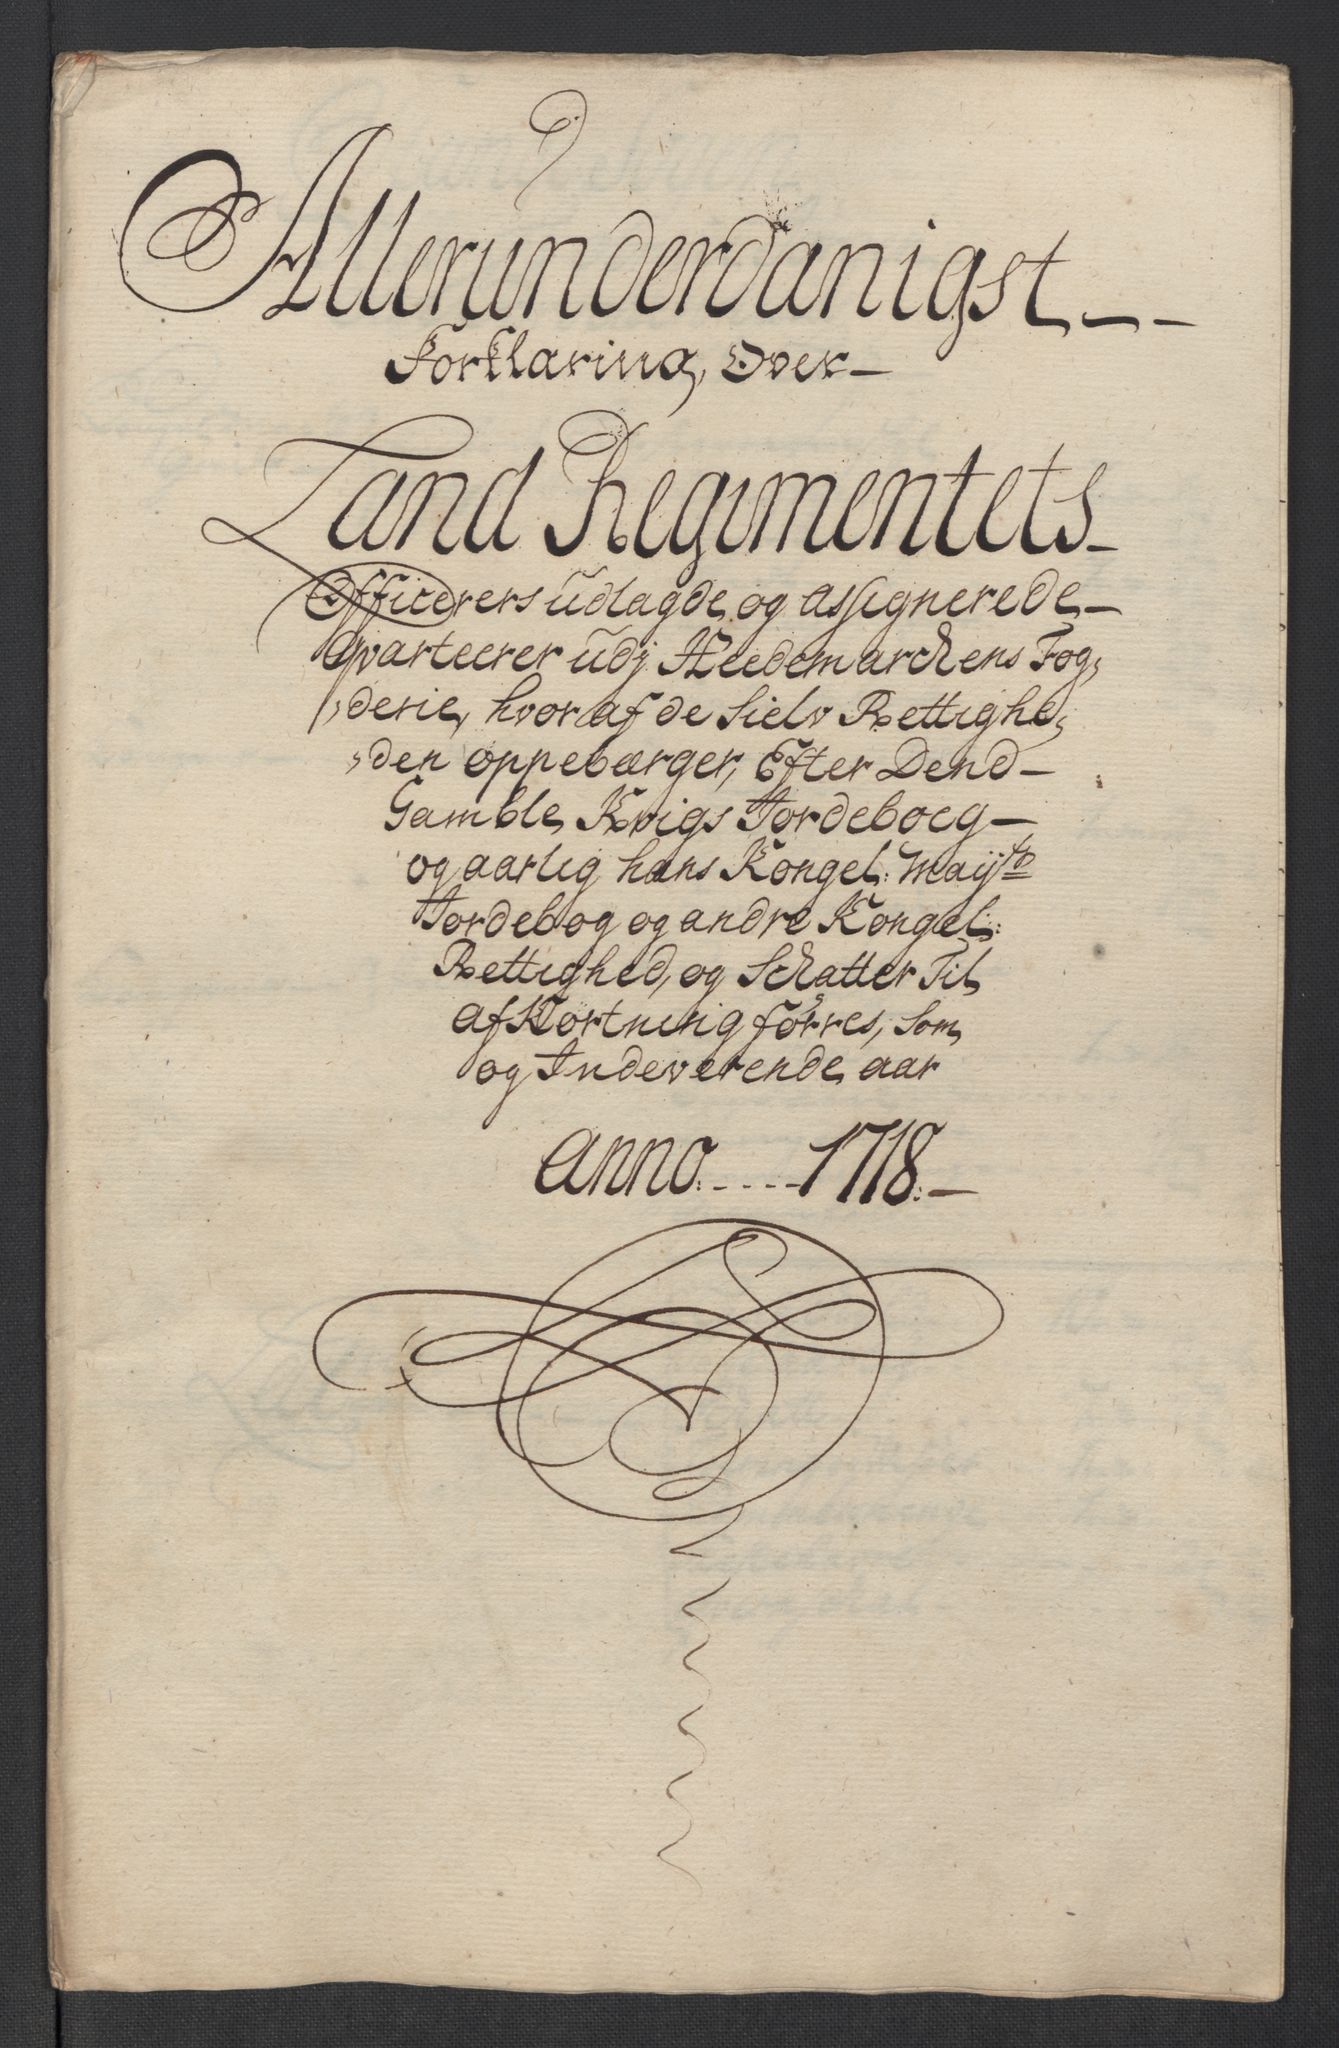 Allerunderdanigst - -
Forklaring, Over -
Land Regimentets -
Officerers udlagde og assignerede -
qvarteerer udj Heedemarckens Fog,
,derie, hvor af de Sielv Rettighe,
,den oppebærger, Efter Dend -
Gamble Krigs Jordeboeg -
og aarlig hans Kongel: Mayts
Jordebog og andre Kongel:
Rettighed, og Schatter Til
afKortning förres, Som
og Indeverende aar
Anno: - - - - 1718: -